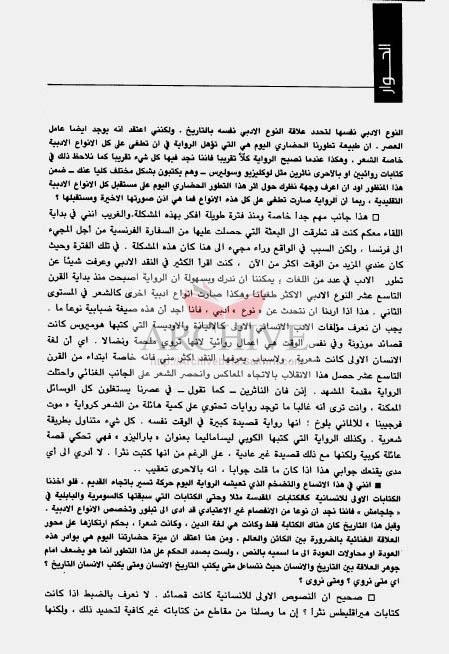 الحـــوار
النوع الادبي نفسها لتحدد علاقة النوع الادبي نفسه بالتاريخ . ولكنني اعتقد انه يوجد ايضا عامل
العصر . ان طبيعة تطورنا الحضاري اليوم هي التي تؤهل الرواية في ان تطغى على كل الانواع الادبية
خاصة الشعر . وهكذا عندما تصبح الرواية كلاً تقريبا فاننا نجد فيها كل شيء تقريبا كما نلاحظ ذلك في
كتابات روائيين او بالأحرى ناثرين مثل لوكليزيو وسوليرس ــ وهم يكتبون بشكل مختلف كليا عنك ــ ضمن
هذا المنظور اود ان اعرف وجهة نظرك حول اثر هذا التطور الحضاري اليوم على مستقبل كل الانواع الادبية
التقليدية ، ربما ان الرواية صارت تطغى على كل هذه الانواع فما هي اذن صورتها الاخيرة ومستقبلها ؟
□ هذا جانب مهم جدا خاصة ومنذ فترة طويلة افكر بهذه المشكلة.والغريب انني في بداية
اللقاء معكم كنت قد تطرقت الى البعثة التي حصلت عليها من السفارة الفرنسية من أجل المجيء
الى فرنسا ، ولكن السبب في الواقع وراء مجيء الى هنا كان هذه المشكلة . في تلك الفترة وحيث
كان عندي المزيد من الوقت اكثر من الآن ، كنت اقرأ الكثير في النقد الادبي وعرفت شيئا عن
تطور الادب في عدد من اللغات ؛ يمكننا أن ندرك وبسهولة ان الرواية اصبحت منذ بداية القرن
التاسع عشر النوع الادبي الاكثر طغيانا وهكذا صارت انواع ادبية اخرى كالشعر في المستوى
الثاني . هذا اذا اردنا ان نتحدث عن « نوع » ادبي ، فانا أجد أن هذه صيغة ضبابية نوعا ما .
يجب أن نعرف مؤلفات الادب الانساني الاولى كالالياذة والاوديسة التي كتبها هوميروس كانت
قصائد موزونة وفي نفس الوقت هي اعمال روائية لانها تروي ملحمة ونضالا . اي أن لغة
الانسان الاولى كانت شعرية . ولاسباب يعرفها النقد اكثر مني فانه خاصة ابتداء من القرن
التاسع عشر حصل هذا الانقلاب بالاتجاه المعاكس وانحصر الشعر على الجانب الغنائي واحتلت
الرواية مقدمة المشهد . إذن فان الناثرين ــ كما تقول ــ في عصرنا يستغلون كل الوسائل
الممكنة ، وانت ترى أنه غالبا ما توجد روايات تحتوي على كمية هائلة من الشعر كرواية « موت
فرجيينا » للألماني بلوخ : انها رواية قصيدة كبيرة في الوقت نفسه . كل شيء متناول بطريقة
شعرية . وكذلك الرواية التي كتبها الكوبي ليساماليما بعنوان « باراليزو » فهي تحكي قصة
عائلة كوبية ولكنها مع ذلك قصيدة غير عادية ، على الرغم من انها كتبت نثراً . لا أدري الى اي
مدى يقنعك جوابي هذا اذا كان ما قلت جوابا ، انه بالاحرى تعقيب ..
■ انني في هذا الاتساع والتضخم الذي تعيشه الرواية اليوم حركة تسير باتجاه القديم . فلو اخذنا
الكتابات الاولى للانسانية كالكتابات المقدسة مثلا وحتى الكتابات التي سبقتها كالسومرية والبابلية في
« جلجامش » فاننا نجد أن نوعا من الانفصام غير الاعتيادي قد ادى الى تبلور وتخصص الانواع الادبية .
وقبل هذا التاريخ كان هناك الكتابة فقط وكانت هي لغة الدين ، وكانت شعرا ، بحكم ارتكازها على محور
العلاقة الغنائية بالضرورة بين الكائن والعالم . ومن هنا أعتقد ان ميزة حضارتنا اليوم هي بوادر هذه
العودة او محاولات العودة الى ما اسميه بالنص ، ولست بصدد الحكم على هذا التطور انما هو يضعف امام
جوهر العلاقة بين التاريخ والانسان حيث نتساءل متى يكتب التاريخ الانسان ومتى يكتب الانسان التاريخ ؟
اي متى نروي ؟ ومتى نروى ؟
□ صحيح ان النصوص الاولى للانسانية كانت قصائد . لا نعرف بالضبط اذا كانت
كتابات هيراقليطس نثراً ؟ إن ما وصلنا من مقاطع من كتاباته غير كافية لتحديد ذلك ، ولكنها
ARCHIVE